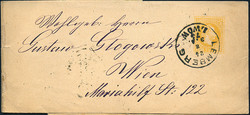 Wohlgeb. Herrn
Gustav Głogowski
Wien
Mariahilf St. 122
LEMBERG
LWÓW